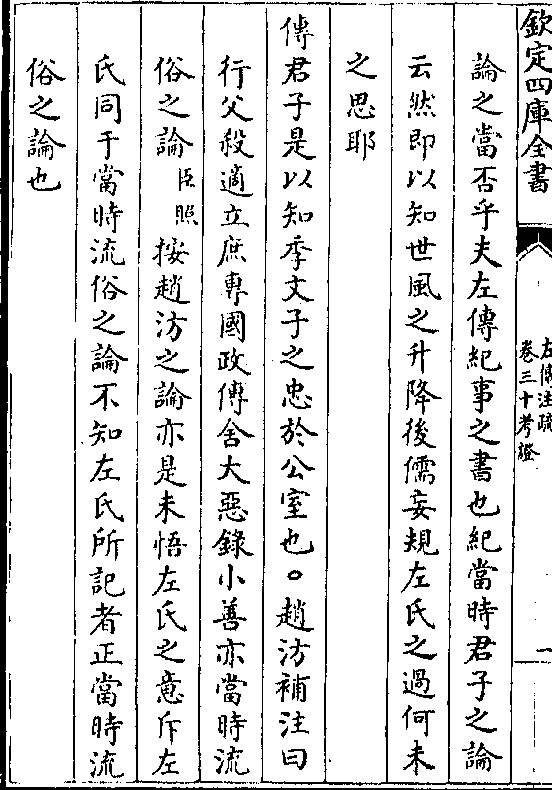 欽定四庫全書
左傳注疏
卷三十考證
一
論之當否乎夫左傳紀事之書也紀當時君子之論
云然即以知世風之升降後儒妄規左氏之過何未
之思耶
傳君子是以知季文子之忠於公室也○趙汸補注曰
行父殺適立庶專國政傳舍大惡錄小善亦當時流
俗之論臣照按趙汸之論亦是未悟左氏之意斥左
氏同于當時流俗之論不知左氏所記者正當時流
俗之論也